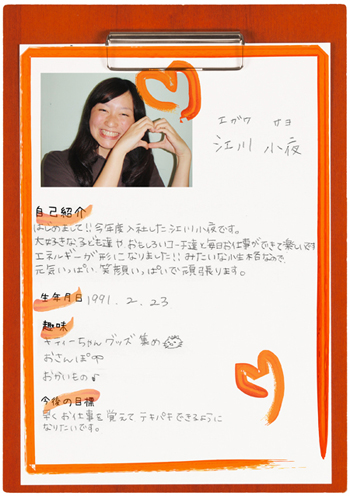 エガワ サヨ
江川 小夜
自己紹介
はじめまして!!今年度入社した江川小夜です。
大好きな子ども達や、おもしろいコーチ達と毎日お仕事ができて楽しいです
エネルギーが形になりました!!みたいな性格なので
元気いっぱい、笑顔いっぱいで頑張ります。
生年月日 1991. 2. 23
趣味
キティーちゃんグッズ集め
おさんぽ
おかいもの♪
今後の目標
早くお仕事を覚えてテキパキできるように
なりたいです。